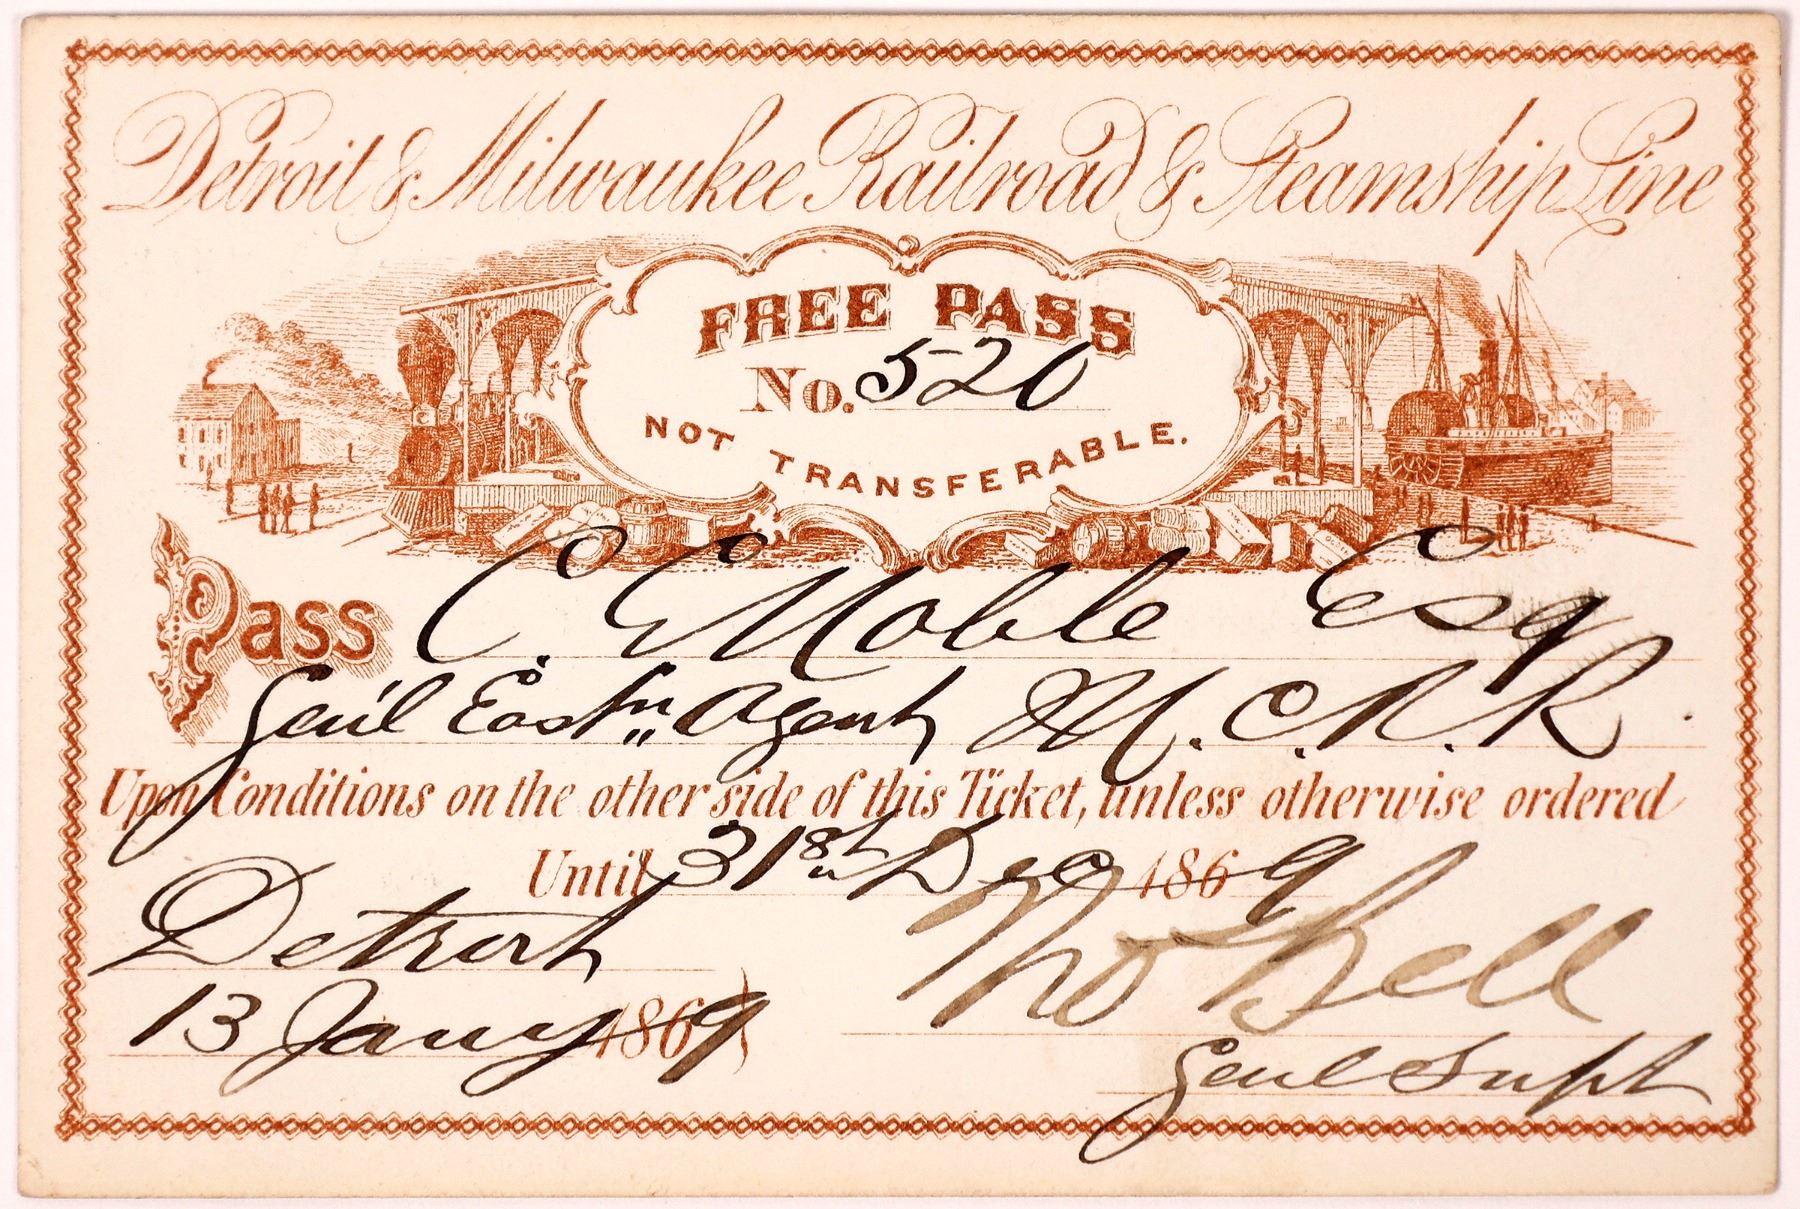 Detroit & Milwaukee Railroad & Steamship Line
FREE PASS
No. 520
NOT TRANSFERABLE.
Pass C. E. Noble Esq
Gen'l East'n Agent M.C.R.R.
Upon Conditions on the other side of this Ticket, unless otherwise ordered
Until 31st Dec 1869
Detroit
13 Jany 1869
Tho Bell
Genl Supt